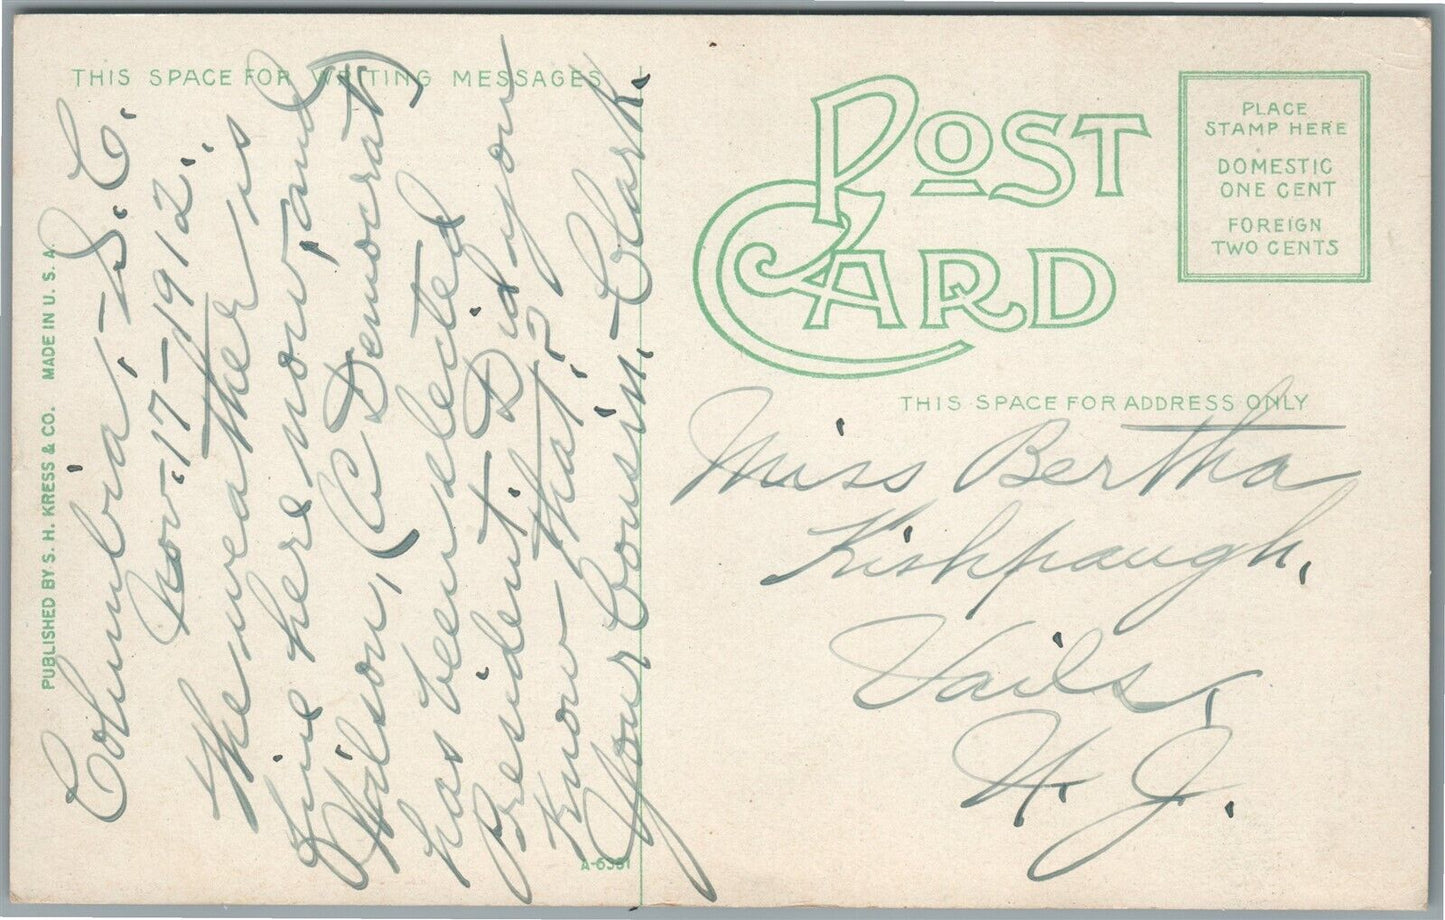 THIS SPACE FOR WRITING MESSAGES
Columbia, S. C.
Nov. 17-1912.
The weather is
fine here now, and
Wilson, (A Democrat)
has been elected
President. Did you
know that?
Your Cousin. Clark.
PUBLISHED BY S. H. KRESS & CO. MADE IN U. S. A.
A-6381
POST
CARD
PLACE
STAMP HERE
DOMESTIC
ONE CENT
FOREIGN
TWO CENTS
THIS SPACE FOR ADDRESS ONLY
Miss Bertha
Kishpaugh,
Vails,
N. J.